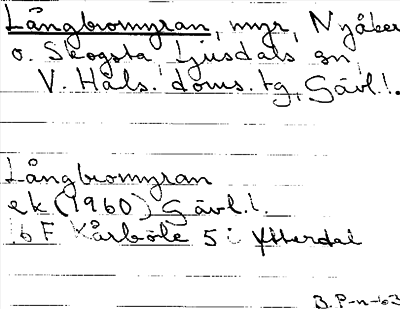 Långbromyran, myr, Nyåker
o. Skogsta, Ljusdals sn
V. Häls. doms. tg, Gävl.l.
Långbromyran
ek (1960) Gävl.l.
16 F Kårböle 5 i Ytterdal
B. P-n-63